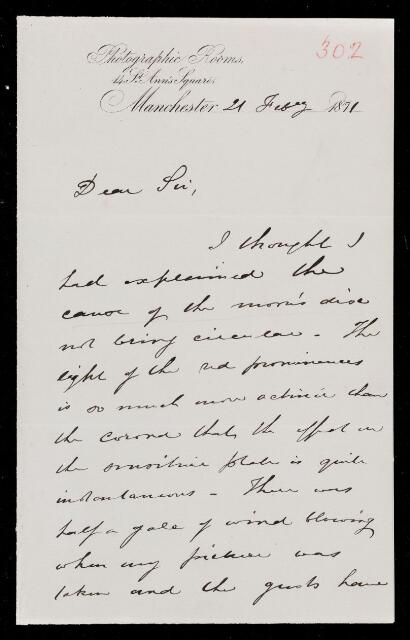 302
Photographic Rooms,
14 St. Ann's Square,
Manchester 21 Feby 1871
Dear Sir,
I thought I
had explained the
cause of the moon's disc
not being circular - The
light of the red prominences
is so much more actinic than
the corona that, the effect on
the sensitive plate is quite
instantaneous - There was
half a gale of wind blowing
when my picture was
taken and the gusts have